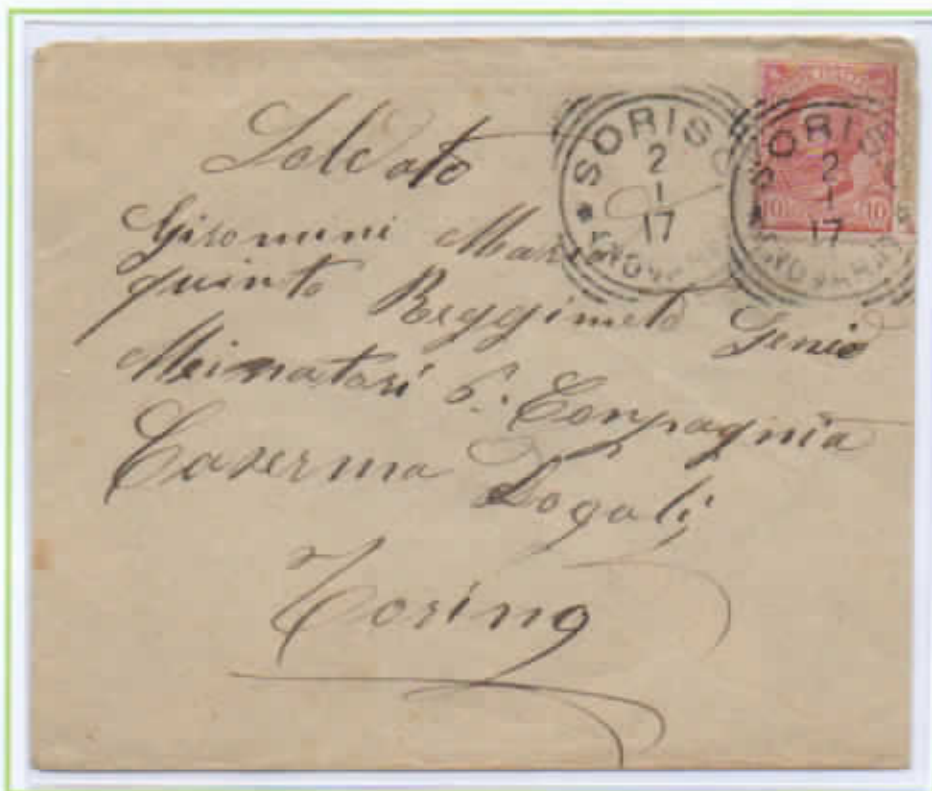 Soldato
Giromini Mario
quinto Reggimeto Genio
Meinatori 6. Conpagnia
Caserma Dogali
Torino
SORISO
2
1
17
(NOVARA)
SORISO
2
1
17
(NOVARA)
10 10